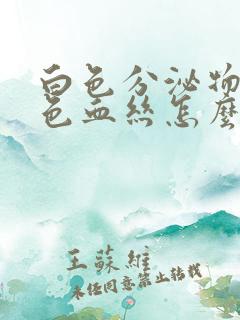 白色分泌物
色血丝怎麽
王蘇維
未经同意禁止转载